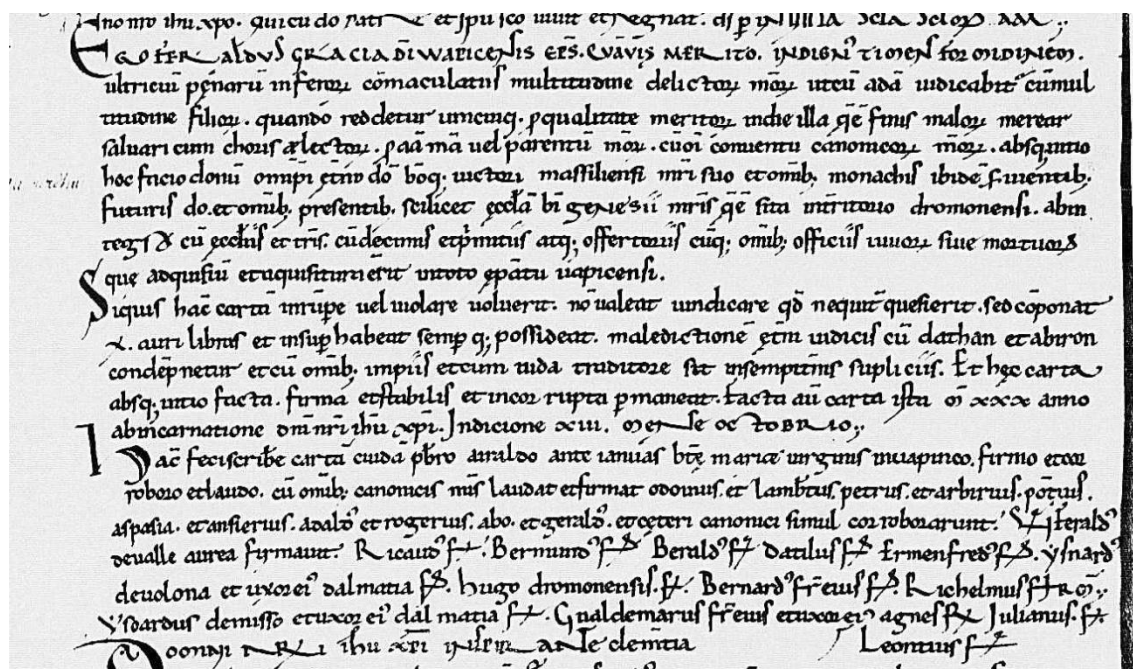 EGO FERALDVS GRACIA DI WAPICENSIS EPS. QVAVIS MERITO. INDIGN' TIMENS FORMIDINEM.
ultriciu penaru inferor comaculatus multitudine delictor meor utcu ada iudicabit cu mul
titudine filior. quando reddetur unicuiq. p qualitate meritor in die illa qe finis malor merear
saluari cum choris elector. p aia mea uel parentu meor. cu oi conuentu canonicor meor. absq uitio
hoc facio donu omipi etno do boq; uictori massiliensi mri suo et omib; monachis ibide seruientib;
futuris do. et omib; presentib. scilicet eccla bi genesii mris qe sita in territorio dromonensi. ab in
tegro cu ecclesiis et tris. cu decimis et pmitiis atq; offertoriis cuq; omib; officiis uiuor siue mortuor
que adquisiu et aquisitur erit in toto epatu uapicensi.
Siquis hac carta inrupe uel uiolare uoluerit. no ualeat uindicare qd nequit quesierit. sed coponat
x. auri libras et insup habeat semp q; possideat. maledictione etni iudicis cu dathan et abiron
condepnetur et cu omib; impiis et cum iuda traditore sit in sempitnis supliciis. Et hec carta
absq; uitio facta. firma et stabilis et incorrupta pmaneat. Facta au carta ista M xxx anno
ab incarnatione dni nri ihu xpi. Indicione xiii. MENSE OCTOBRIO;
Hac feci scribe carta cuida pbro airaldo ante ianuas bte marie uirginis in uapinco. firmo et cor
roboro et laudo. cu omib; canonicis meis laudat et firmat odoinus. et lambtus. petrus. et arbirius. potius.
aspasia. et ansierius. adald' et rogerius. abo. et gerald'. et ceteri canonici simul corroborarunt. Ferald'
de ualle aurea firmauit. Ricaud' f. Bermund' f Berald' f datilus f Ermenfred' f. ysnard'
de uolona et uxor ei' dalmatia f. hugo dromonensis. f. Bernard' fr eius f. Richelmus f
ysoardus de misso et uxor ei' dalmatia f. Gualdemarus fr eius et uxor ei' agnes f Julianus. f
clemtia Leontius f